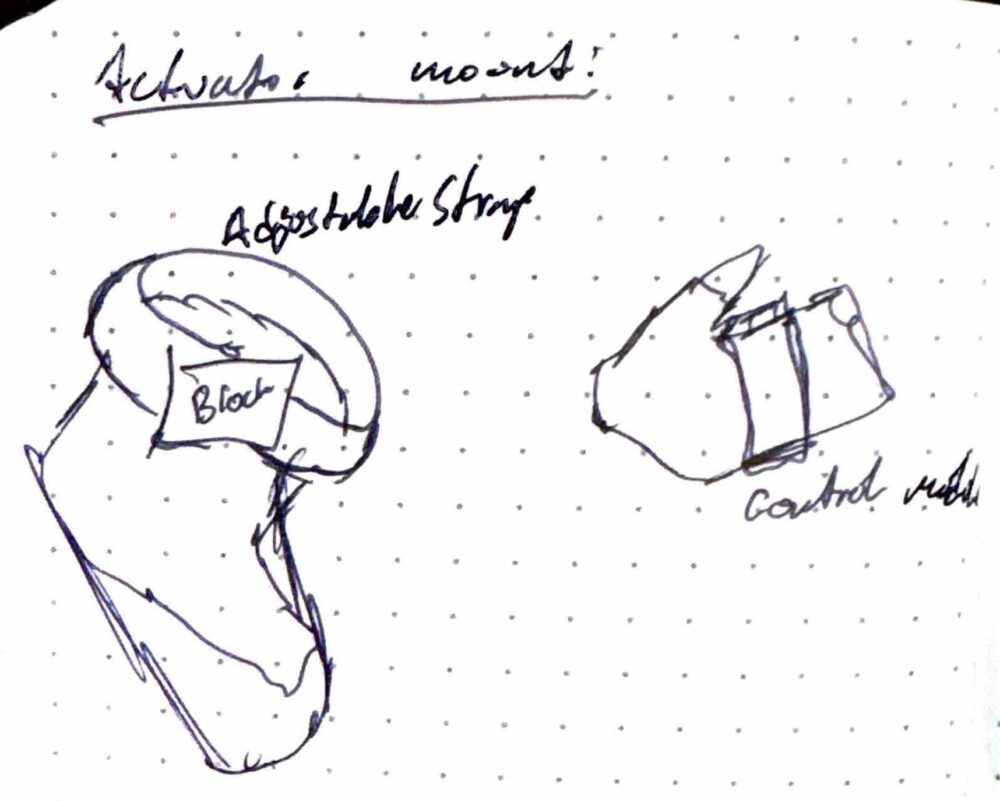 Actuator mount:
Adjustable Strap
Block
Control